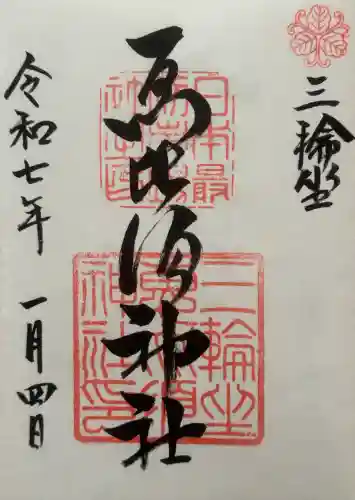 三輪坐
恵比須神社
令和七年 一月四日
日本最
三輪坐
恵比須
神社印